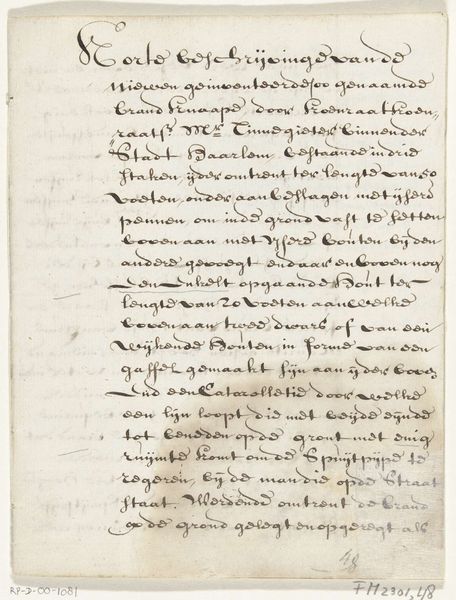 Korte beschrijvinge van de
Niewen geinventeerde soo genaamde
brand knaape, door Koenraat Koen-
raatsz. Mr. Tinnegieter binnen der
Stadt Haarlem, bestaande in drie
staken, yder omtrent ter lengte van 50
voeten, onder aan beslagen met ijsere
pennen, om in de grond vast te setten
boven aan met Ysere bouten bij den
andere gevoegt en daar en boven nog
een Enkelt opgaande Hout ter
lengte van 20 voeten aan welke
boven aan twee dwars of van een
wijkende Houten in forme van een
gaffel gemaakt sijn aan yder boven
Eind een Catrolletie door welke
een lijn loopt die met beyde eynde
tot beneden op de gront met enig
ruijmte komt om de Spuijtpijpe te
regeren, bij de man die op de Straat
staat. Werdende omtrent de brand
op de grond gelegt en opgeregt als
48
RP-D-00-1081
FM2301,48